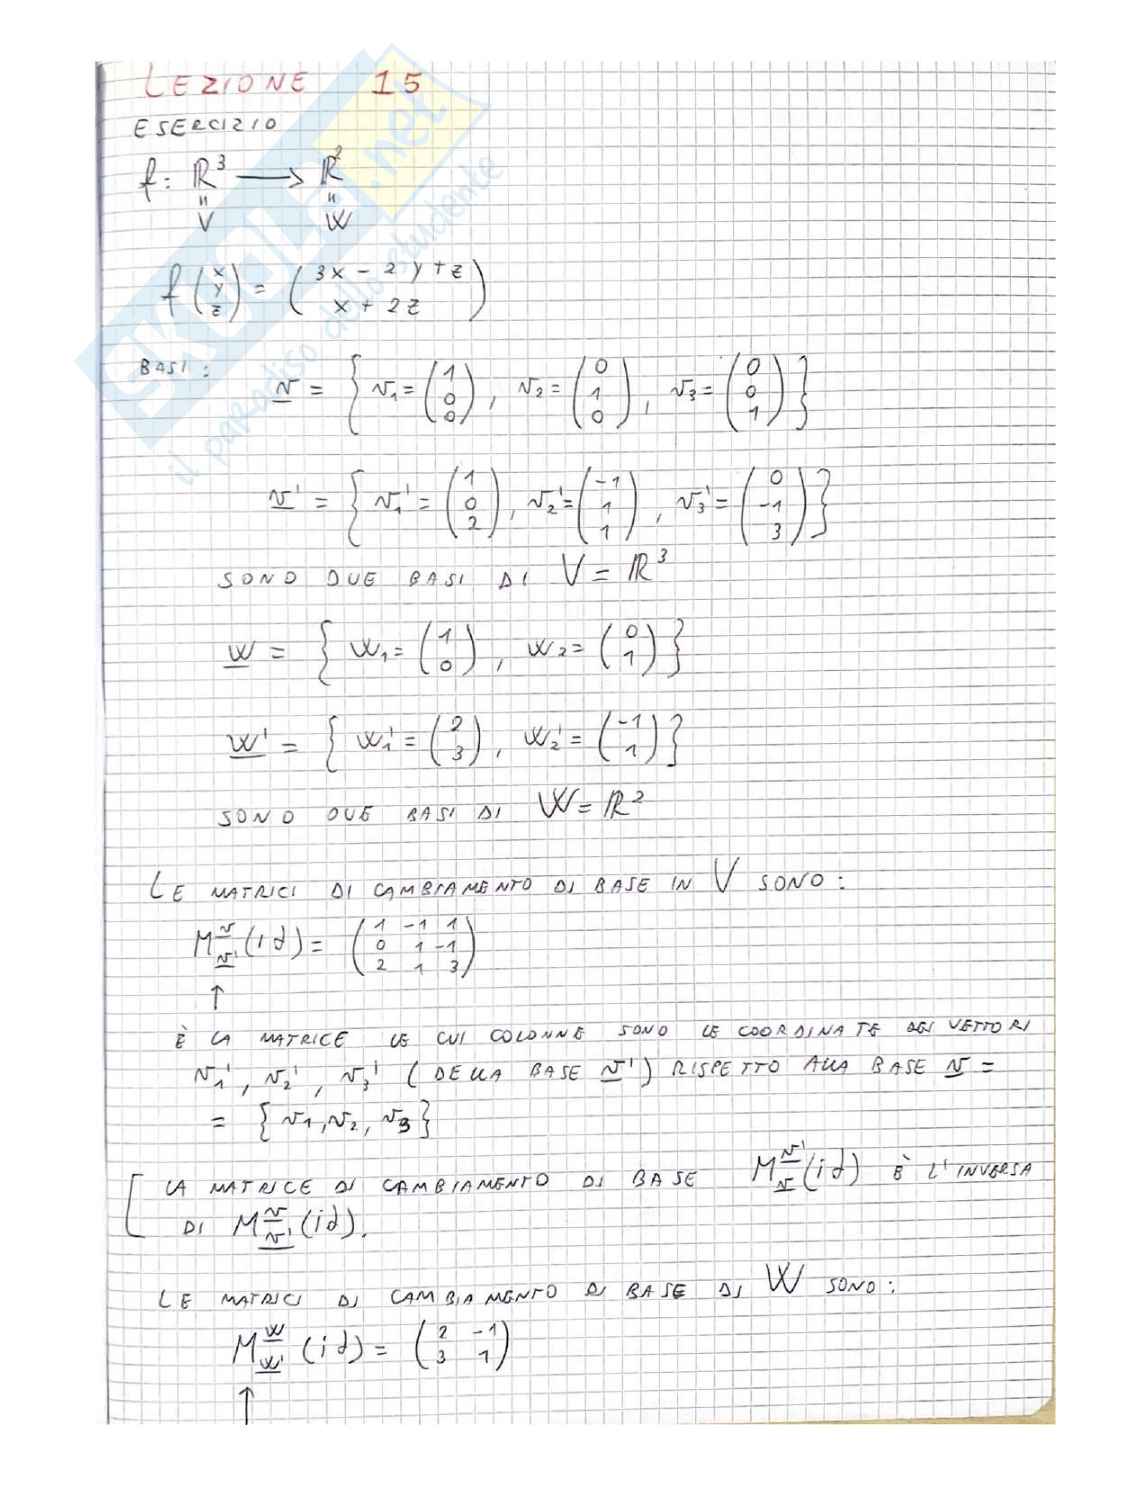 LEZIONE 15
ESERCIZIO
f: R³ → R²
= =
V W
f(x y z) = (3x - 2y + z, x + 2z)
BASI: v = { v₁ = (1 0 0), v₂ = (0 1 0), v₃ = (0 0 1) }
v' = { v₁' = (1 0 2), v₂' = (-1 1 1), v₃' = (0 -1 3) }
SONO DUE BASI DI V = R³
w = { w₁ = (1 0), w₂ = (0 1) }
w' = { w₁' = (2 3), w₂' = (-1 1) }
SONO DUE BASI DI W = R²
LE MATRICI DI CAMBIAMENTO DI BASE IN V SONO:
M^v_v'(id) = (1 -1 1
0 1 -1
2 1 3)
↑
È LA MATRICE LE CUI COLONNE SONO LE COORDINATE DEI VETTORI
v₁', v₂', v₃' (DELLA BASE v') RISPETTO ALLA BASE v =
= { v₁, v₂, v₃ }
[ LA MATRICE DI CAMBIAMENTO DI BASE M^v'_v(id) È L'INVERSA
DI M^v_v'(id).
LE MATRICI DI CAMBIAMENTO DI BASE DI W SONO:
M^w_w'(id) = (2 -1
3 1)
↑
SKUOLA.net
il paradiso dello studente